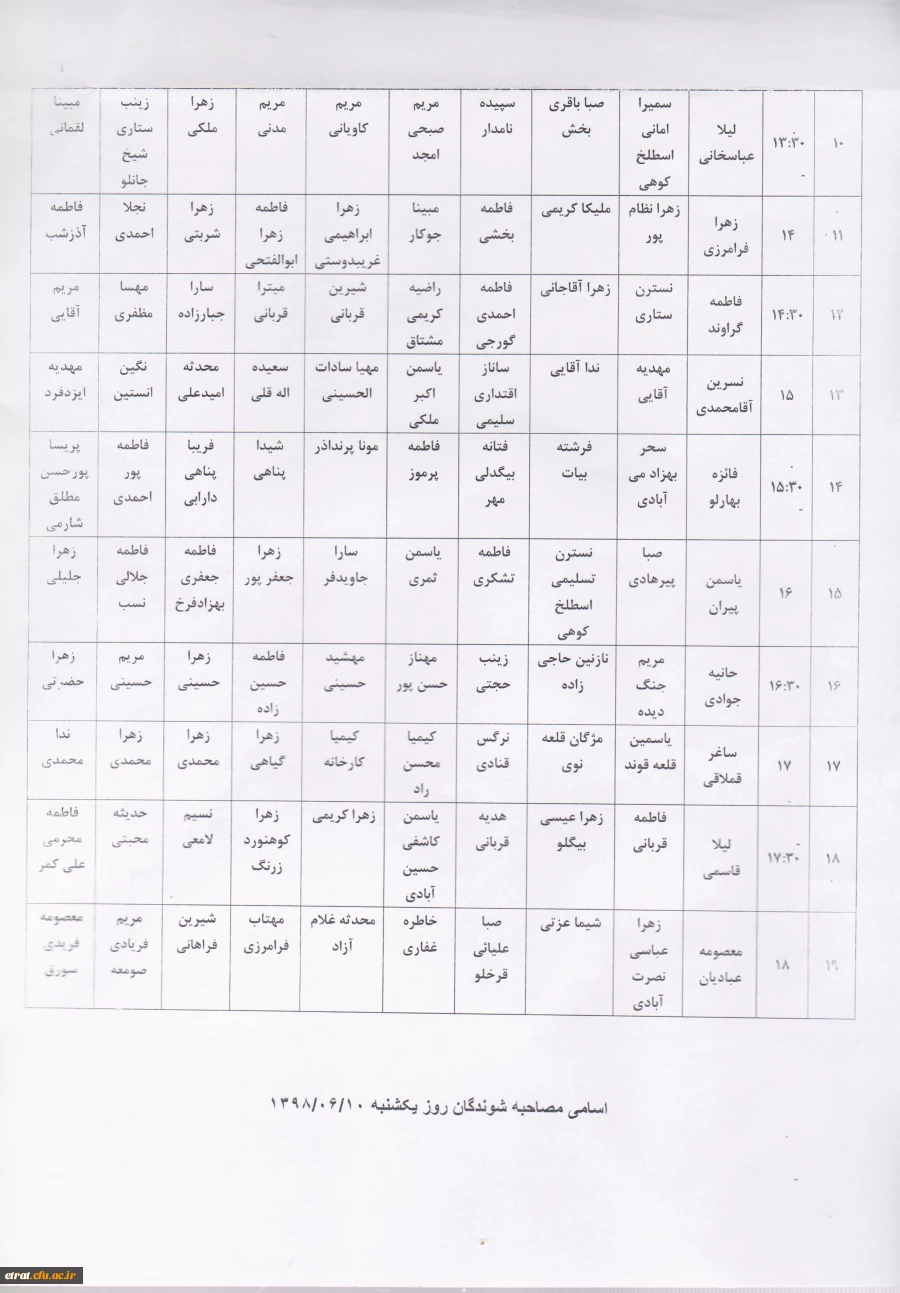 ۱۰ ۱۳:۳۰ لیلا عباسخانی سمیرا امانی اسطلخ کوهی صبا باقری بخش سپیده نامدار مریم صبحی امجد مریم کاویانی مریم مدنی زهرا ملکی زینب ستاری شیخ جانلو مبینا لقمانی
۱۱ ۱۴ زهرا فرامرزی زهرا نظام پور ملیکا کریمی فاطمه بخشی مبینا جوکار زهرا ابراهیمی غریبدوستی فاطمه زهرا ابوالفتحی زهرا شربتی نجلا احمدی فاطمه آذرشب
۱۲ ۱۴:۳۰ فاطمه گراوند نسترن ستاری زهرا آقاجانی فاطمه احمدی گورجی راضیه کریمی مشتاق شیرین قربانی میترا قربانی سارا جبارزاده مهسا مظفری مریم آقایی
۱۳ ۱۵ نسرین آقامحمدی مهدیه آقایی ندا آقایی ساناز اقتداری سلیمی یاسمن اکبر ملکی مهیا سادات الحسینی سعیده اله قلی محدثه امیدعلی نگین انستین مهدیه ایزدفرد
۱۴ ۱۵:۳۰ فائزه بهارلو سحر بهزاد می آبادی فرشته بیات فتانه بیگدلی مهر فاطمه پرموز مونا پرنداذر شیدا پناهی فریبا پناهی دارابی فاطمه پور احمدی پریسا پورحسن مطلق شارمی
۱۵ ۱۶ یاسمن پیران صبا پیرهادی نسترن تسلیمی اسطلخ کوهی فاطمه تشکری یاسمن ثمری سارا جاویدفر زهرا جعفر پور فاطمه جعفری بهزادفرخ فاطمه جلالی نسب زهرا جلیلی
۱۶ ۱۶:۳۰ حانیه جوادی مریم جنگ دیده نازنین حاجی زاده زینب حجتی مهناز حسن پور مهشید حسینی فاطمه حسین زاده زهرا حسینی مریم حسینی زهرا حضرتی
۱۷ ۱۷ ساغر قملاقی یاسمین قلعه قوند مژگان قلعه نوی نرگس قنادی کیمیا محسن راد کیمیا کارخانه زهرا گیاهی زهرا محمدی زهرا محمدی ندا محمدی
۱۸ ۱۷:۳۰ لیلا قاسمی فاطمه قربانی زهرا عیسی بیگلو هدیه قربانی یاسمن کاشفی حسین آبادی زهرا کریمی زهرا کوهنورد زرنگ نسیم لامعی حدیثه محبتی فاطمه محرمی علی کمر
۱۹ ۱۸ معصومه عبادیان زهرا عباسی نصرت آبادی شیما عزتی صبا علیائی قرخلو خاطره غفاری محدثه غلام آزاد مهتاب فرامرزی شیرین فراهانی مریم فریادی صومعه معصومه فریدی سورق
اسامی مصاحبه شوندگان روز یکشنبه ۱۳۹۸/۰۶/۱۰
etrat.cfu.ac.ir